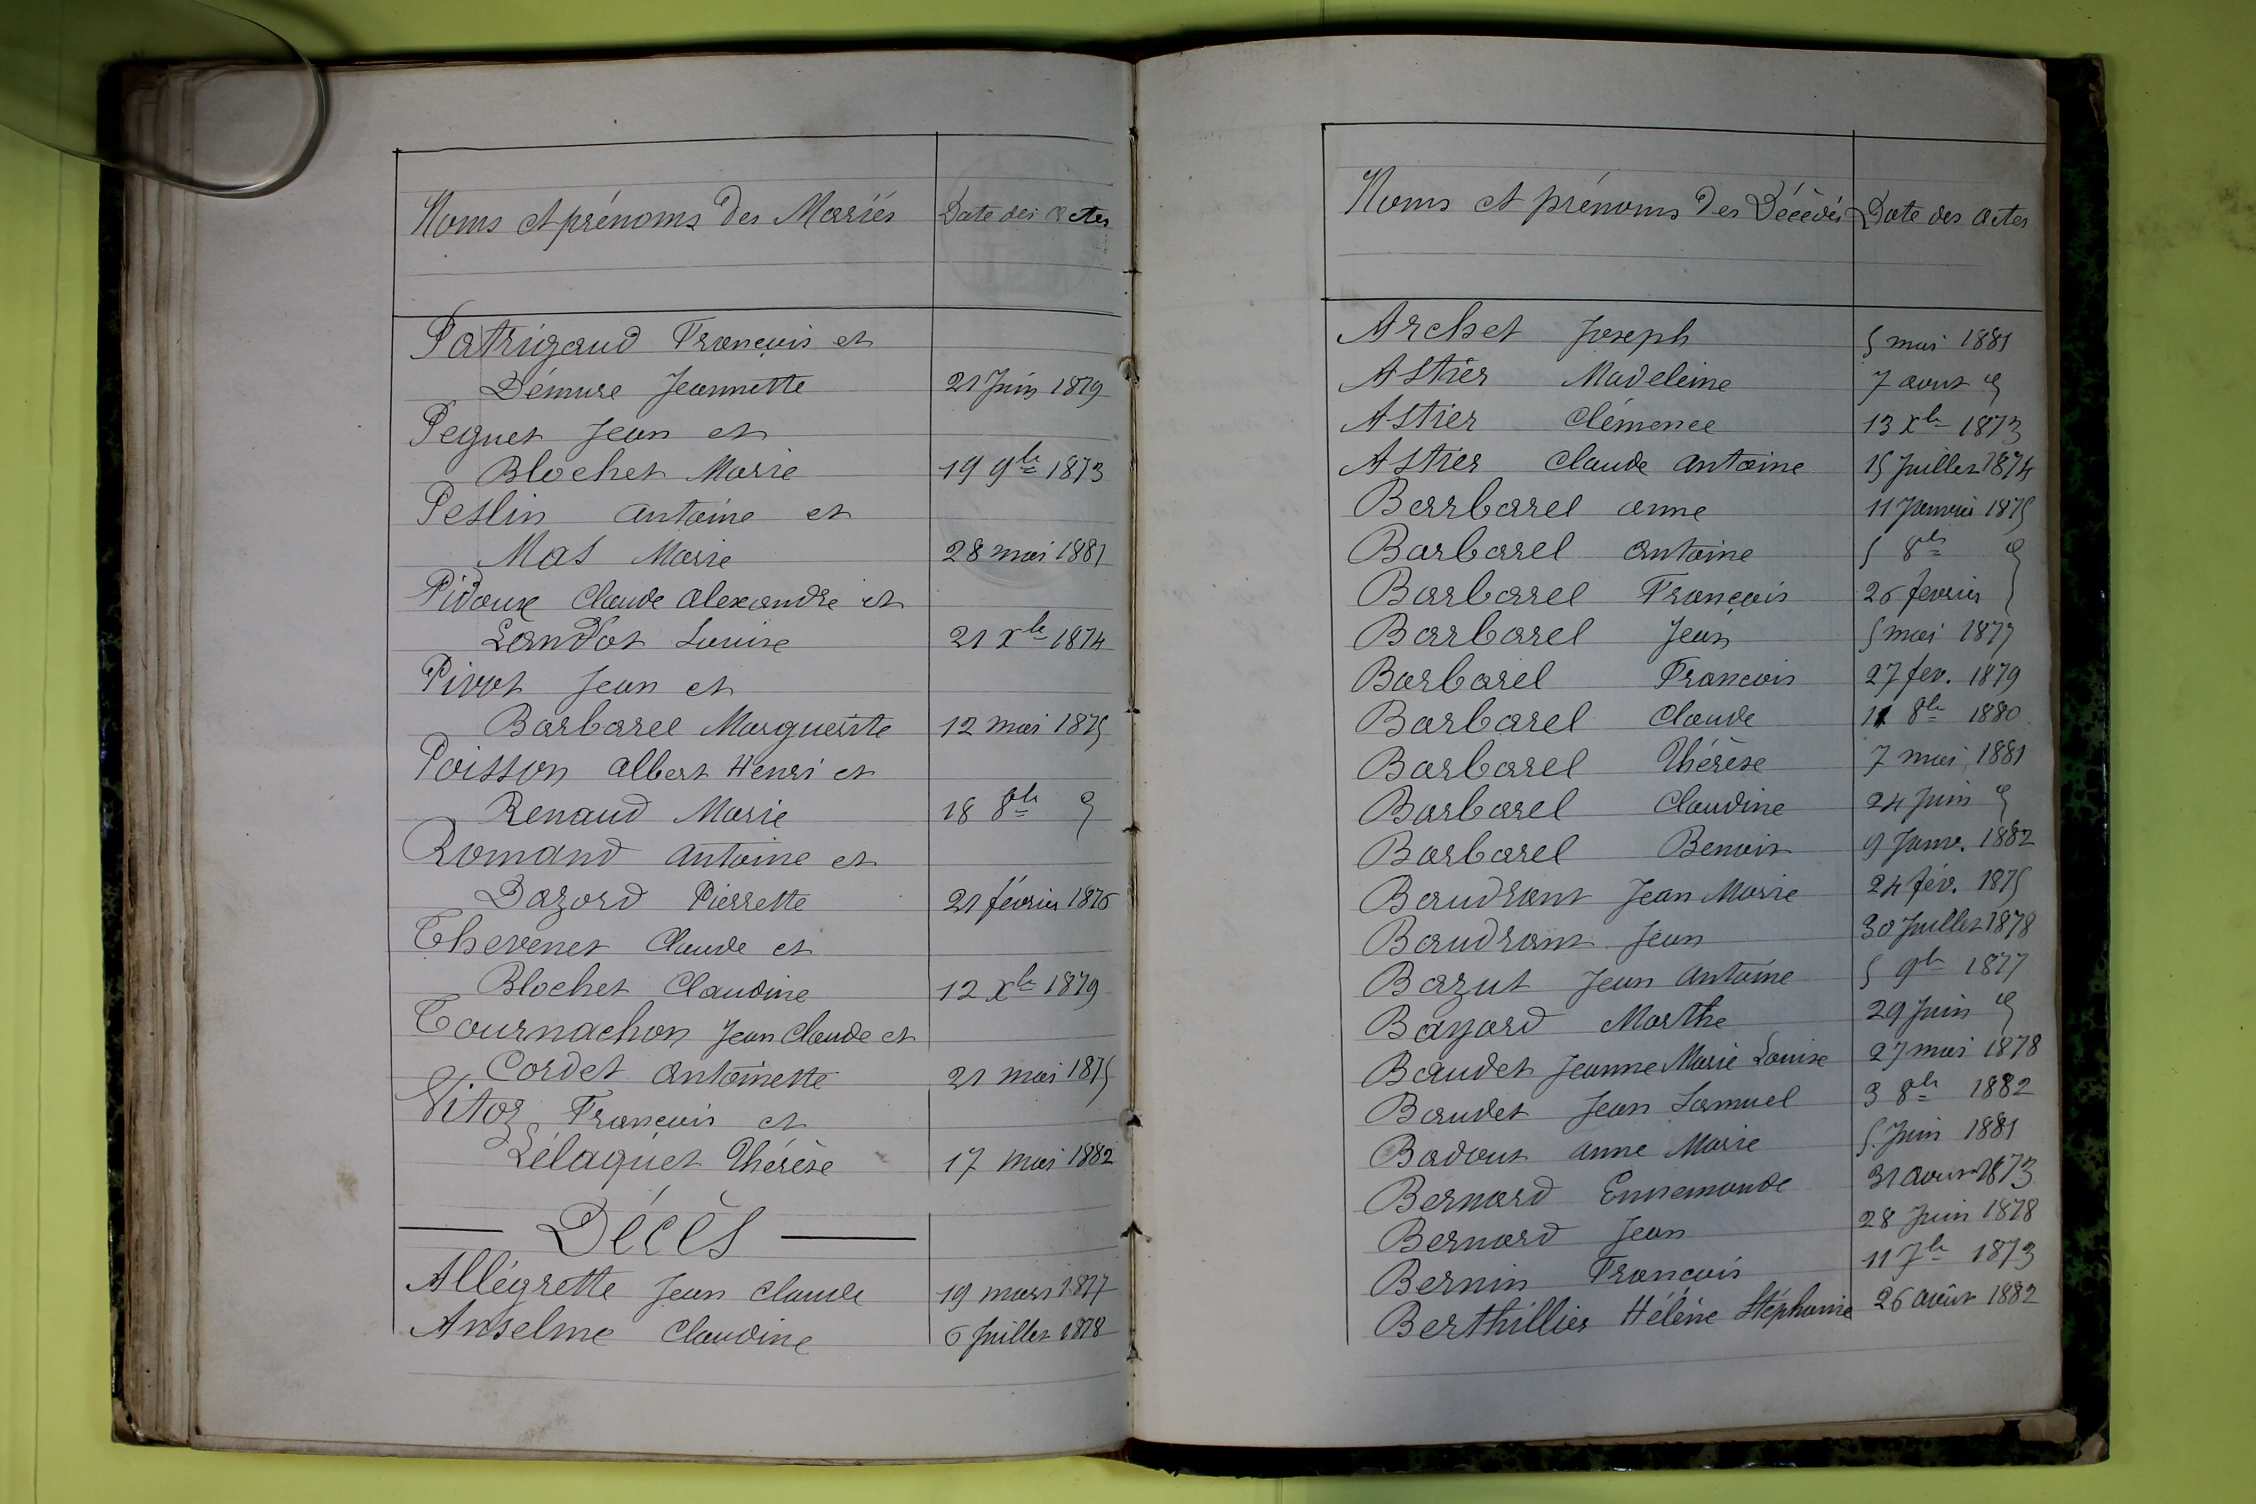 Noms et prénoms des Mariés Date des actes
Patrigaud François et
Démure Jeannette 21 Juin 1879
Peguet Jean et
Blochet Marie 19 9bre 1873
Peslin antoine et
Mas Marie 28 mai 1881
Pidoux Claude alexandre et
Landot Louise 21 Xbre 1874
Pivot Jean et
Barbarel Marguerite 12 mai 1875
Poisson albert Henri et
Renaud Marie 18 8bre
Romand antoine et
Dazord Pierrette 21 février 1876
Thevenet Claude et
Blochet Claudine 12 Xbre 1879
Tournachon Jean Claude et
Cordet antoinette 21 mai 1875
Vitoz François et
Lélaquet Thérèse 17 mai 1882
Décès
Allégrette Jean claude 19 mars 1877
Anselme Claudine 6 Juillet 1878
Noms et prénoms des Décédés Date des actes
Archet Joseph 5 mai 1881
Astier Madeleine 7 aout
Astier Clémence 13 Xbre 1873
Astier Claude antoine 15 Juillet 1874
Barbarel anne 11 Janvier 1875
Barbarel antoine 5 8bre
Barbarel François 26 fevrier
Barbarel Jean 5 mai 1877
Barbarel Francois 27 fev. 1879
Barbarel Claude 11 8bre 1880
Barbarel Thérèse 7 mai 1881
Barbarel Claudine 24 Juin
Barbarel Benoit 9 Janv. 1882
Baudrant Jean Marie 24 fév. 1875
Baudrant Jean 30 Juillet 1878
Bazut Jean antoine 5 9bre 1877
Bayard Marthe 29 Juin
Baudet Jeanne Marie Louise 27 mai 1878
Baudet Jean Samuel 3 8bre 1882
Badout anne Marie 5 Juin 1881
Bernard Ennemonde 31 aout 1873
Bernard Jean 28 Juin 1878
Bernin François 11 7bre 1873
Berthillier Hélène Stéphanie 26 août 1882